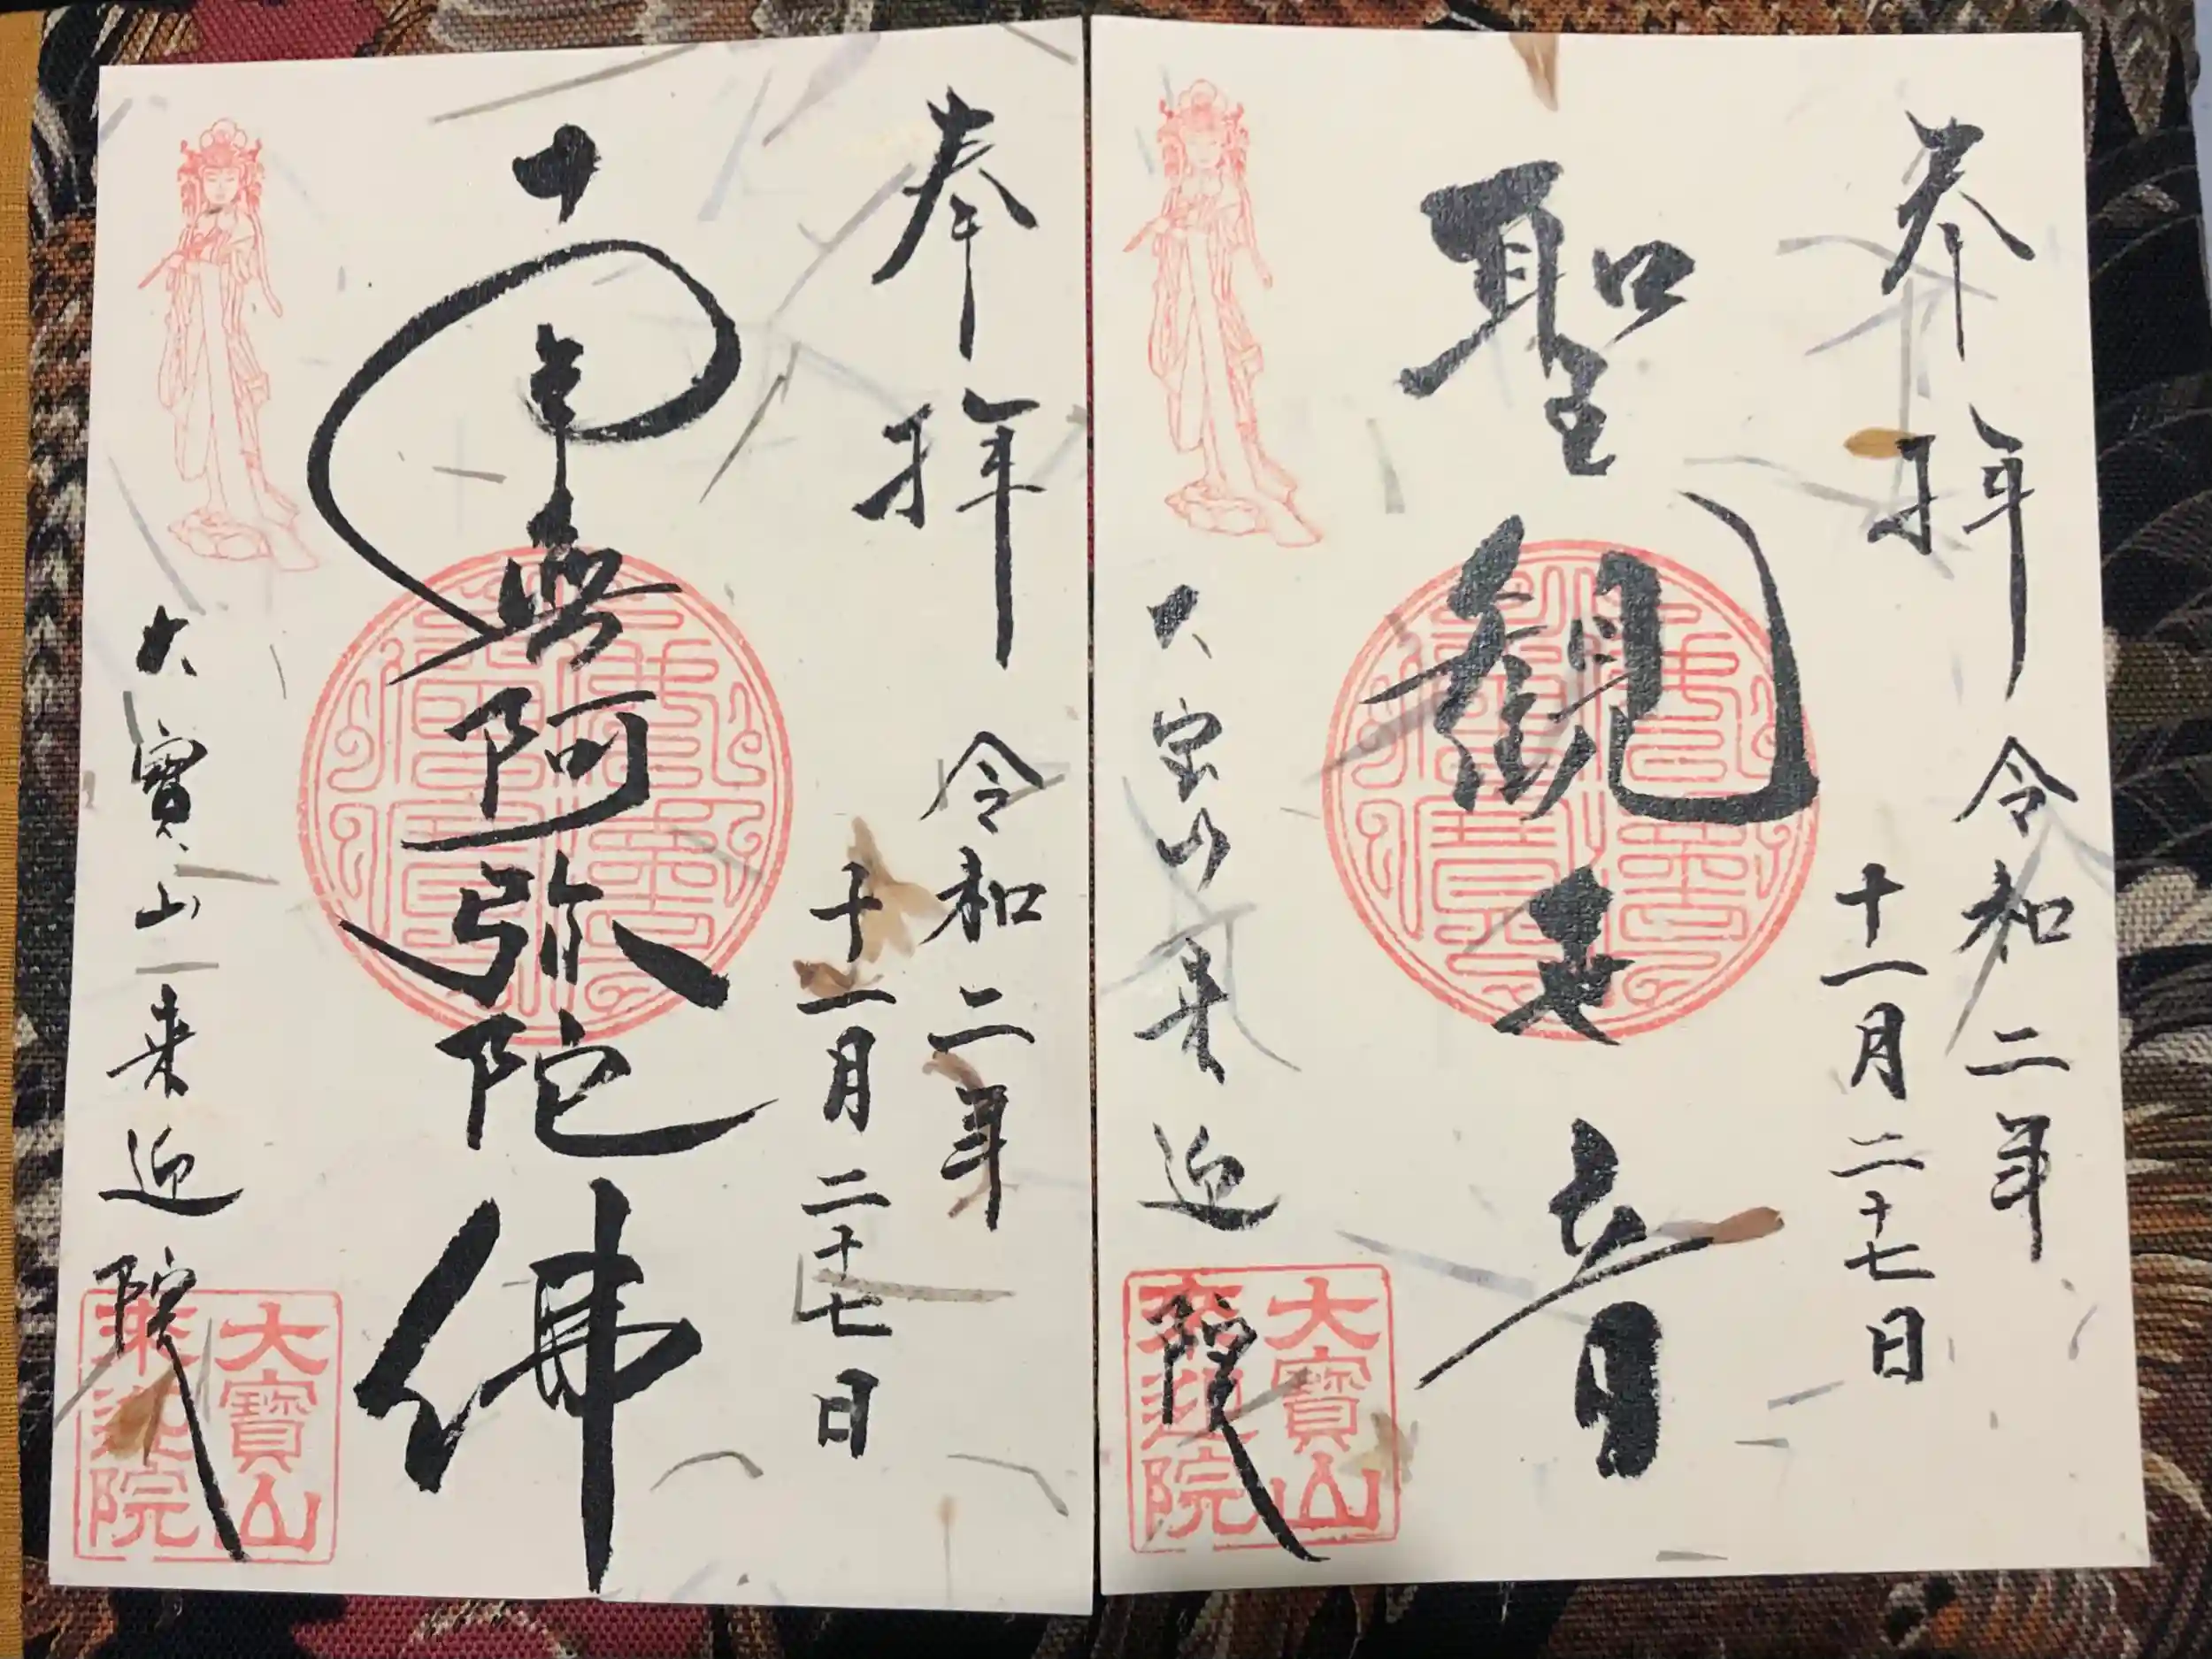 奉拝
令和二年
十一月二十七日
聖観世音
大宝山来迎院
大寳山
来迎院
奉拝
令和二年
十一月二十七日
南無阿弥陀佛
大寳山来迎院
大寳山
来迎院